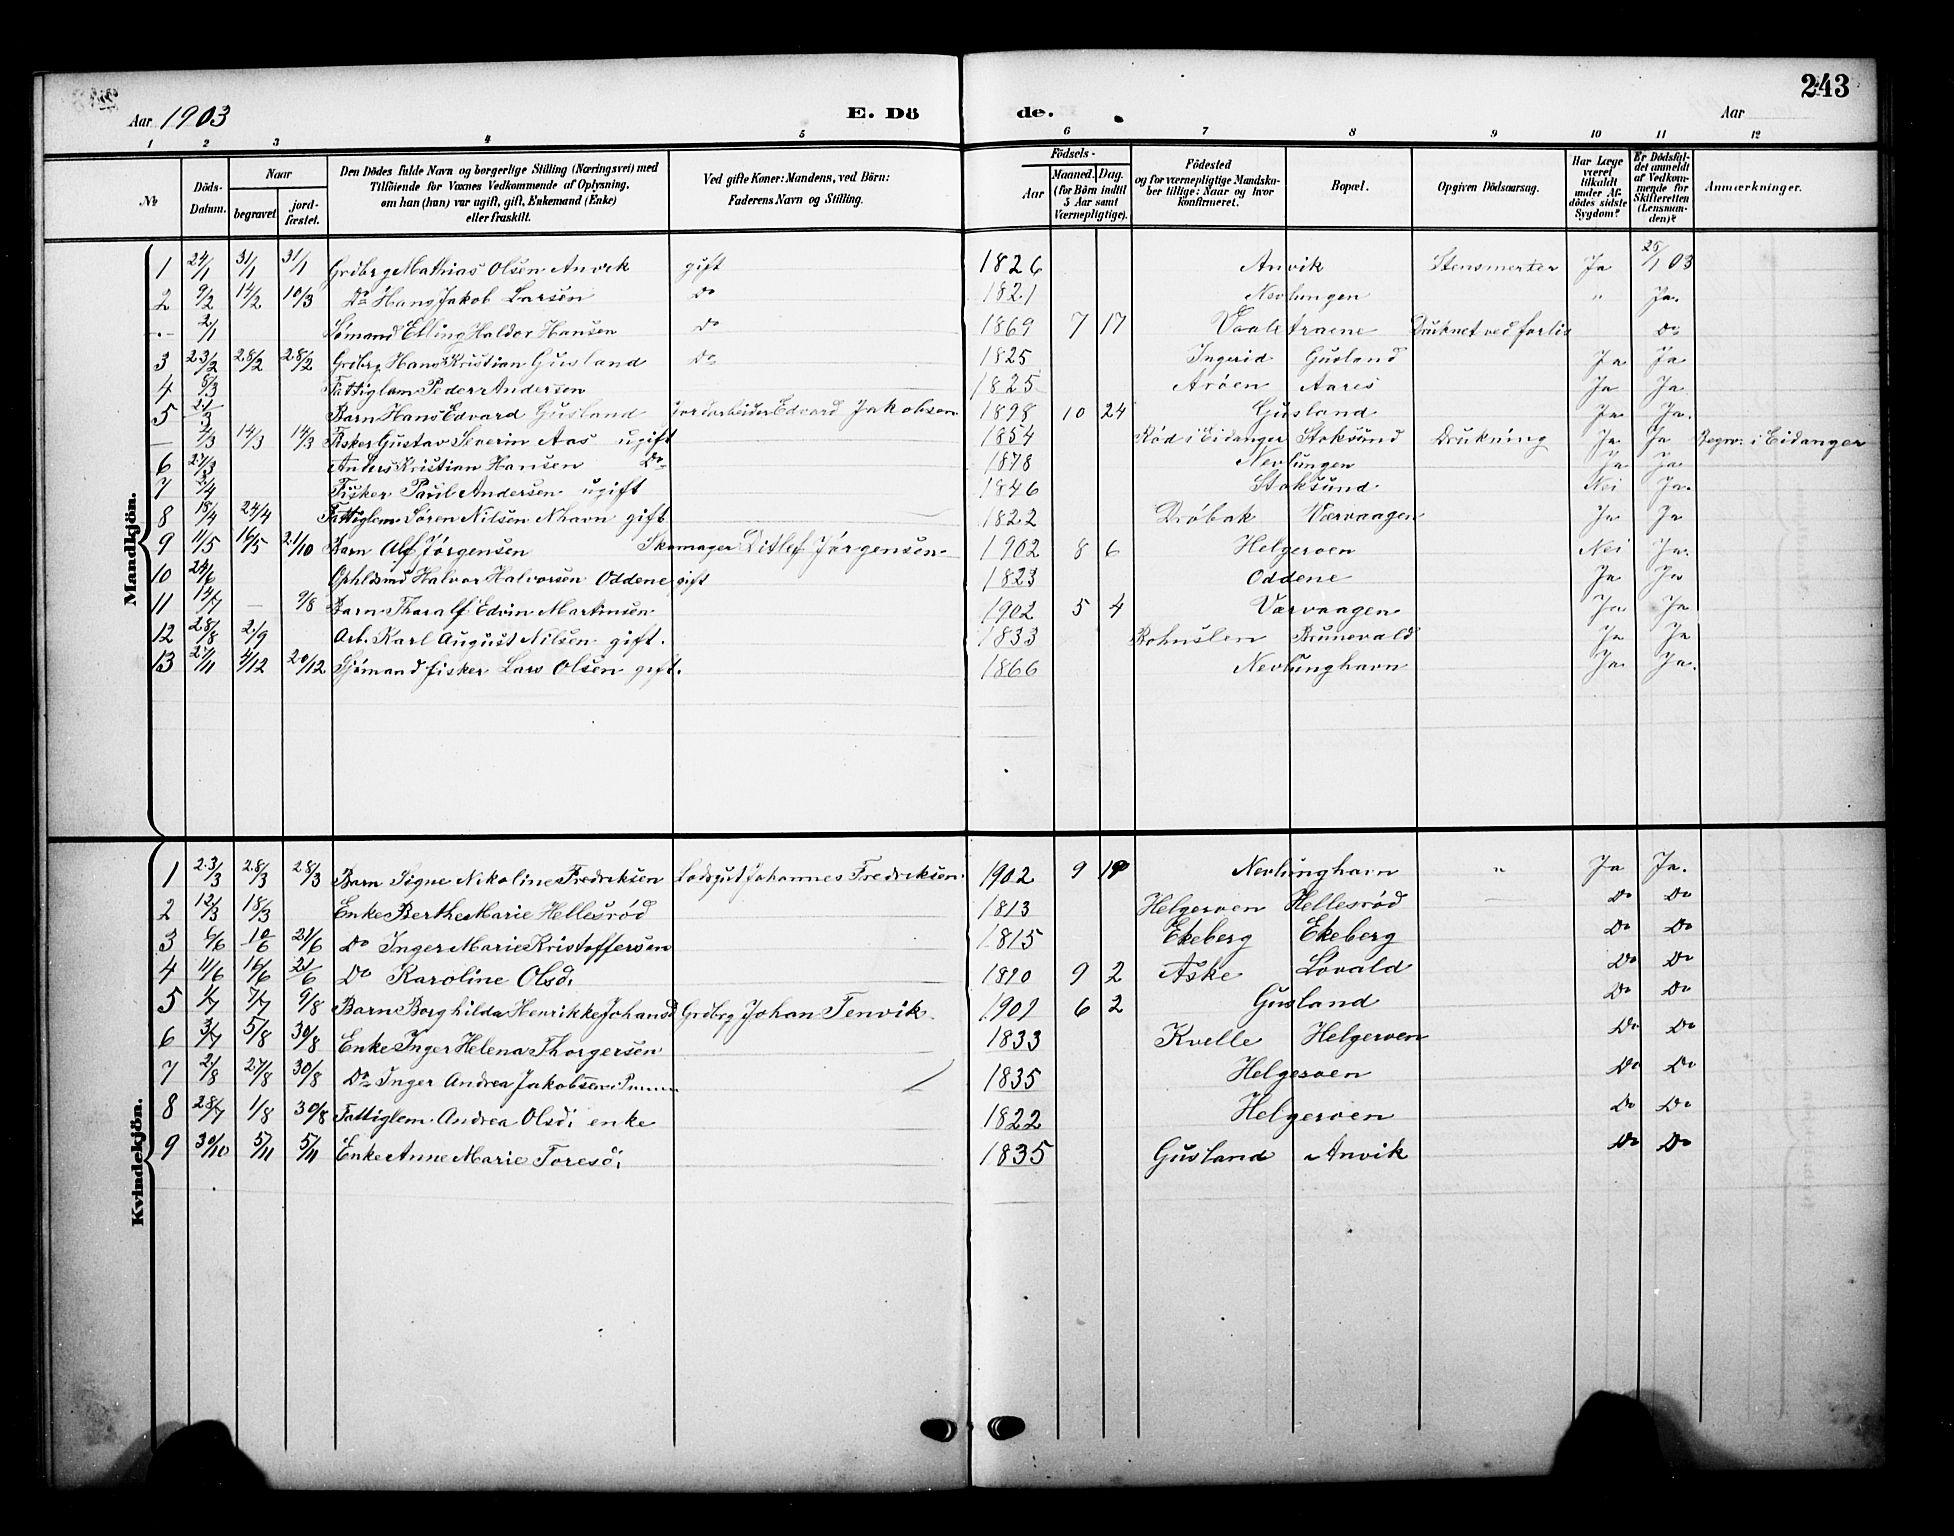 243
Aar 1903
E. Dö
de.
Aar
1 2 3 4 5 6 7 8 9 10 11 12
№
Döds-Datum.
Naar
begravet.
jord-fæstet.
Den Dödes fulde Navn og borgerlige Stilling (Næringsvei) med
Tilföiende for Voxnes Vedkommende af Oplysning,
om han (hun) var ugift, gift, Enkemand (Enke)
eller fraskilt.
Ved gifte Koner: Mandens, ved Börn:
Faderens Navn og Stilling.
Födsels-
Aar
Maaned. Dag.
(for Börn indtil
5 Aar samt
Værnepligtige).
Födested
og for værnepligtige Mandska-
ber tillige: Naar og hvor
konfirmeret.
Bopæl.
Opgiven Dödsaarsag.
Har Læge
været
tilkaldt
under Af-
dödes sidste
Sygdom?
Er Dödsfal-
det anmeldt
af Vedkom-
mende for
Skifteretten
(Lensman-
den)?
Anmærkninger.
Mandkjön.
1 24/1 31/1 31/1 Grdbrg Mathias Olsen Anvik gift 1826 Anvik Ja 25/1 03
2 9/2 14/2 10/3 Do Hans Jakob Larsen Do 1821 Nevlungen " Ja.
— 2/1 Sømand Elling Haldor Hansen Do 1869 7 17 Druknet ved forlis Do
3 23/2 28/2 28/2 Grdbrg Hans Kristian Gusland Do 1825 Ingerid Gusland Ja Ja
4 5/3 Fattiglem Peder Andersen 1825 Arøen Aarøs Ja Ja
5 Barn Hans Edvard Gusland Jordarbeider Edvard Jakobsen 1898 10 24 Gusland Ja Ja.
— 14/3 14/3 Fisker Gustav Severin Aas ugift 1854 Rød i Eidanger Stoksund Drukning Ja Ja Begrv. i Eidanger
6 Anders Kristian Hansen Do 1878 Nevlungen Ja Ja
7 Fisker Paul Andersen ugift 1846 Stoksund Nei Ja.
8 18/4 24/4 Fattiglem Søren Nilsen Nhavn gift 1822 Drøbak Værvaagen Ja Ja
9 11/5 16/5 21/10 Barn Alf Jørgensen Skomager Ditlef Jørgensen 1902 8 6 Helgeroen Nei Ja.
10 24/6 Halvor Halvorsen Oddene gift 1823 Oddene Ja Ja
11 14/7 — 9/8 Barn Tharalf Edvin Martinsen 1902 5 4 Værvaagen Ja Ja
12 28/8 2/9 Arb. Karl August Nilsen gift. 1833 Bohuslen Brunevald Ja Ja
13 27/11 4/12 20/12 Sjømand fisker Lars Olsen gift. 1866 Nevlunghavn Ja Ja.
Kvindekjön.
1 23/3 28/3 28/3 Barn Signe Nikoline Fredriksen Lodsgut Johannes Fredriksen 1902 9 19 Nevlunghavn " Ja Ja.
2 12/3 18/3 Enke Berthe Marie Hellesrød 1813 Helgeroen Hellesrød Do Do
3 6/6 10/6 21/6 Do Inger Marie Kristoffersen 1815 Ekeberg Ekeberg Do Do
4 11/6 16/6 21/6 Do Karoline Olsd. 1820 9 2 Aske Løvald Do Do
5 1/7 7/7 9/8 Barn Borghilda Henrikke Johansd Grdbrg Johan Tenvik. 1901 6 2 Gusland Do Do
6 3/7 5/8 30/8 Enke Inger Helena Thorgersen 1833 Kvelle Helgeroen Do Do
7 2/8 27/8 30/8 Do Inger Andrea Jakobsen 1835 Helgeroen Do Do
8 28/7 1/8 30/8 Fattiglem Andrea Olsd. enke 1822 Helgeroen Do Do
9 30/10 5/11 5/11 Enke Anne Marie Toresd. 1835 Gusland Anvik Do Do